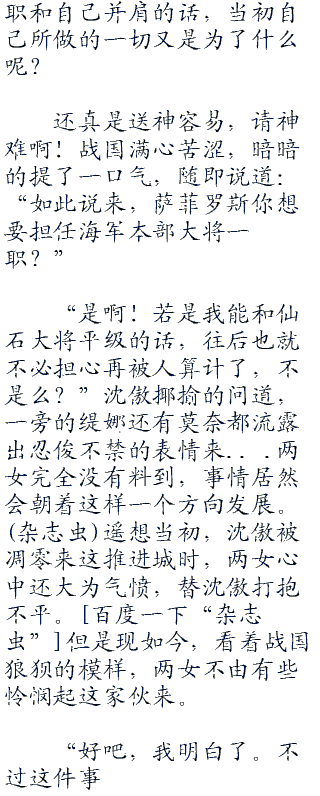 职和自己并肩的话，当初自
己所做的一切又是为了什么
呢？
还真是送神容易，请神
难啊！战国满心苦涩，暗暗
的提了一口气，随即说道：
“如此说来，萨菲罗斯你想
要担任海军本部大将一
职？”
“是啊！若是我能和仙
石大将平级的话，往后也就
不必担心再被人算计了，不
是么？”沈傲揶揄的问道，
一旁的缇娜还有莫奈都流露
出忍俊不禁的表情来...两
女完全没有料到，事情居然
会朝着这样一个方向发展。
(杂志虫)遥想当初，沈傲被
凋零来这推进城时，两女心
中还大为气愤，替沈傲打抱
不平。[百度一下“杂志
虫”]但是现如今，看着战国
狼狈的模样，两女不由有些
怜悯起这家伙来。
“好吧，我明白了。不
过这件事